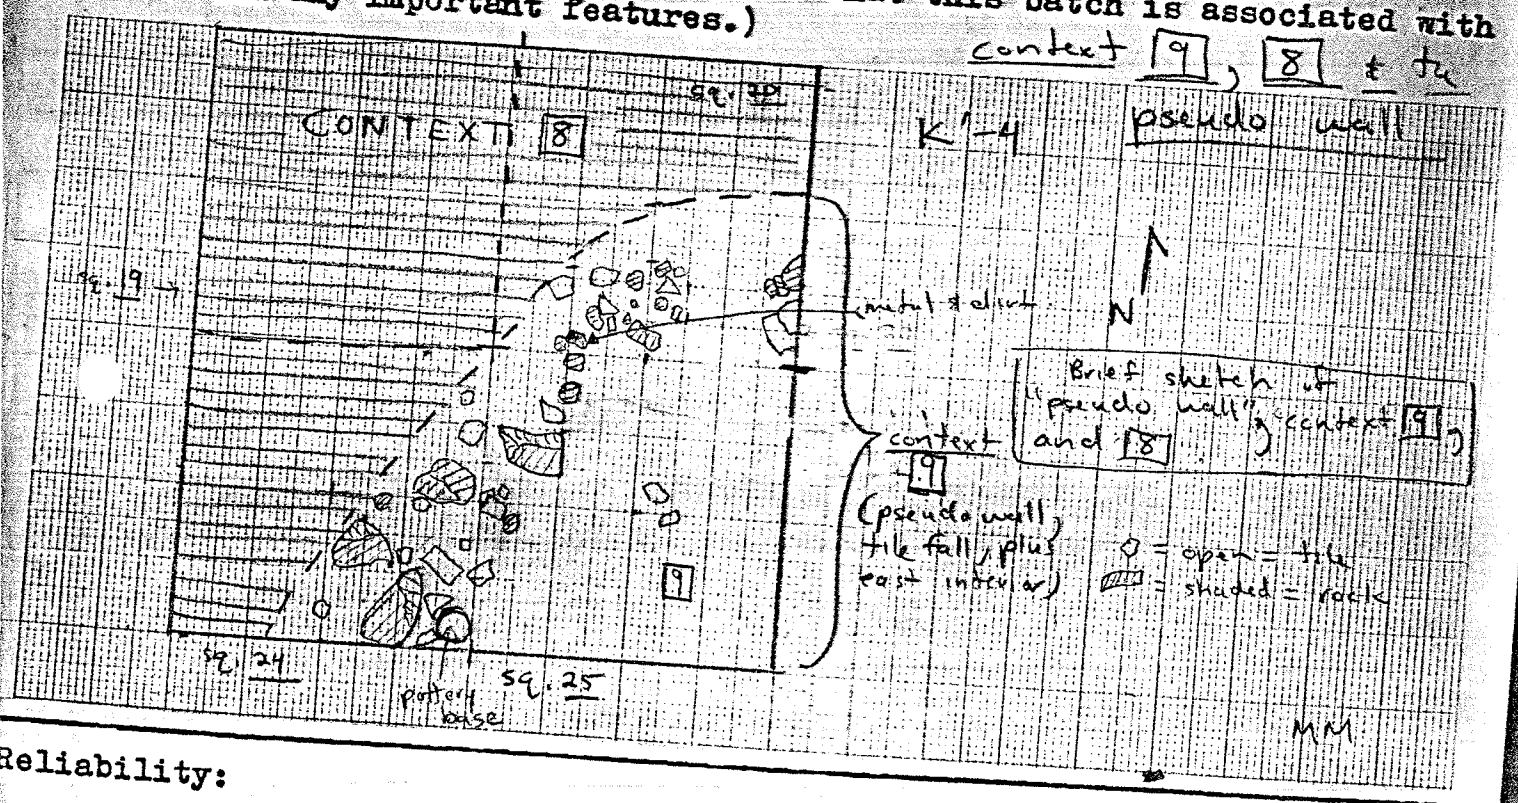 important features.)
this batch is associated with
context 9, 8 &
pseudo wall
sq. 20
CONTEXT 8
K'-4
sq. 19 →
metal & dirt
N
Brief sketch of
"pseudo wall", context 9,
and 8
context
9
(pseudo wall,
tile fall, plus
east interior)
= open = tile
= shaded = rock
9
sq. 24
sq. 25
pottery
base
MM
Reliability: